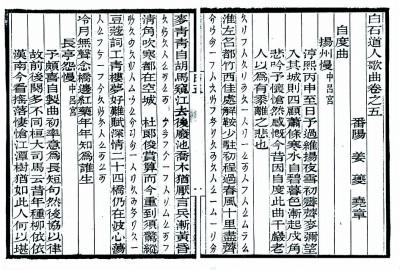 白石道人歌曲卷之五
番陽 姜夔 堯章
自度曲
揚州慢 中呂宮
淳熙丙申至日予過維揚夜雪初霽薺麥彌望
入其城則四顧蕭條寒水自碧暮色漸起戍角
悲吟予懷愴然感慨今昔因自度此曲千巖老
人以為有黍離之悲也
淮左名都竹西佳處解鞍少駐初程過春風十里盡薺
麥青青自胡馬窺江去後廢池喬木猶厭言兵漸黃昏
清角吹寒都在空城 杜郎俊賞算而今重到須驚縱
荳蔻詞工青樓夢好難賦深情二十四橋仍在波心蕩
冷月無聲念橋邊紅藥年年知為誰生
長亭怨慢 中呂宮
予頗喜自製曲初率意為長短句然後協以律
故前後闋多不同桓大司馬云昔年種柳依依
漢南今看搖落悽愴江潭樹猶如此人何以堪